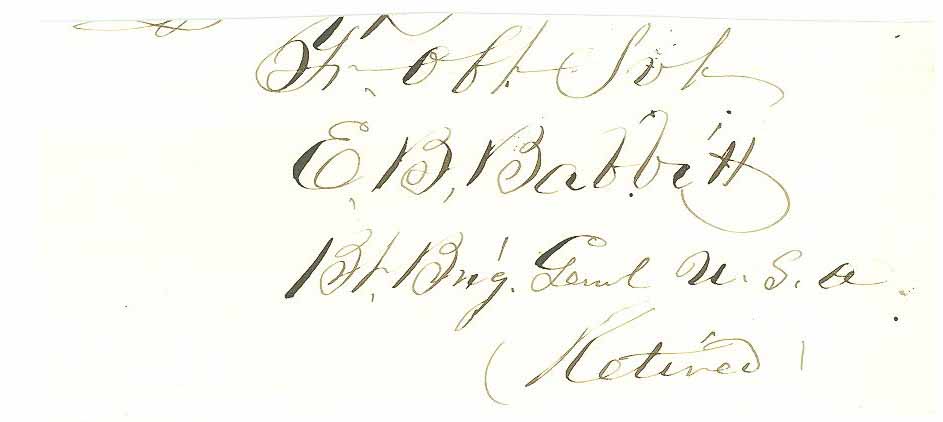 Yr. obt. Svt.
E. B. Babbitt
Bt. Brig. Genl U. S. A.
(Retired)